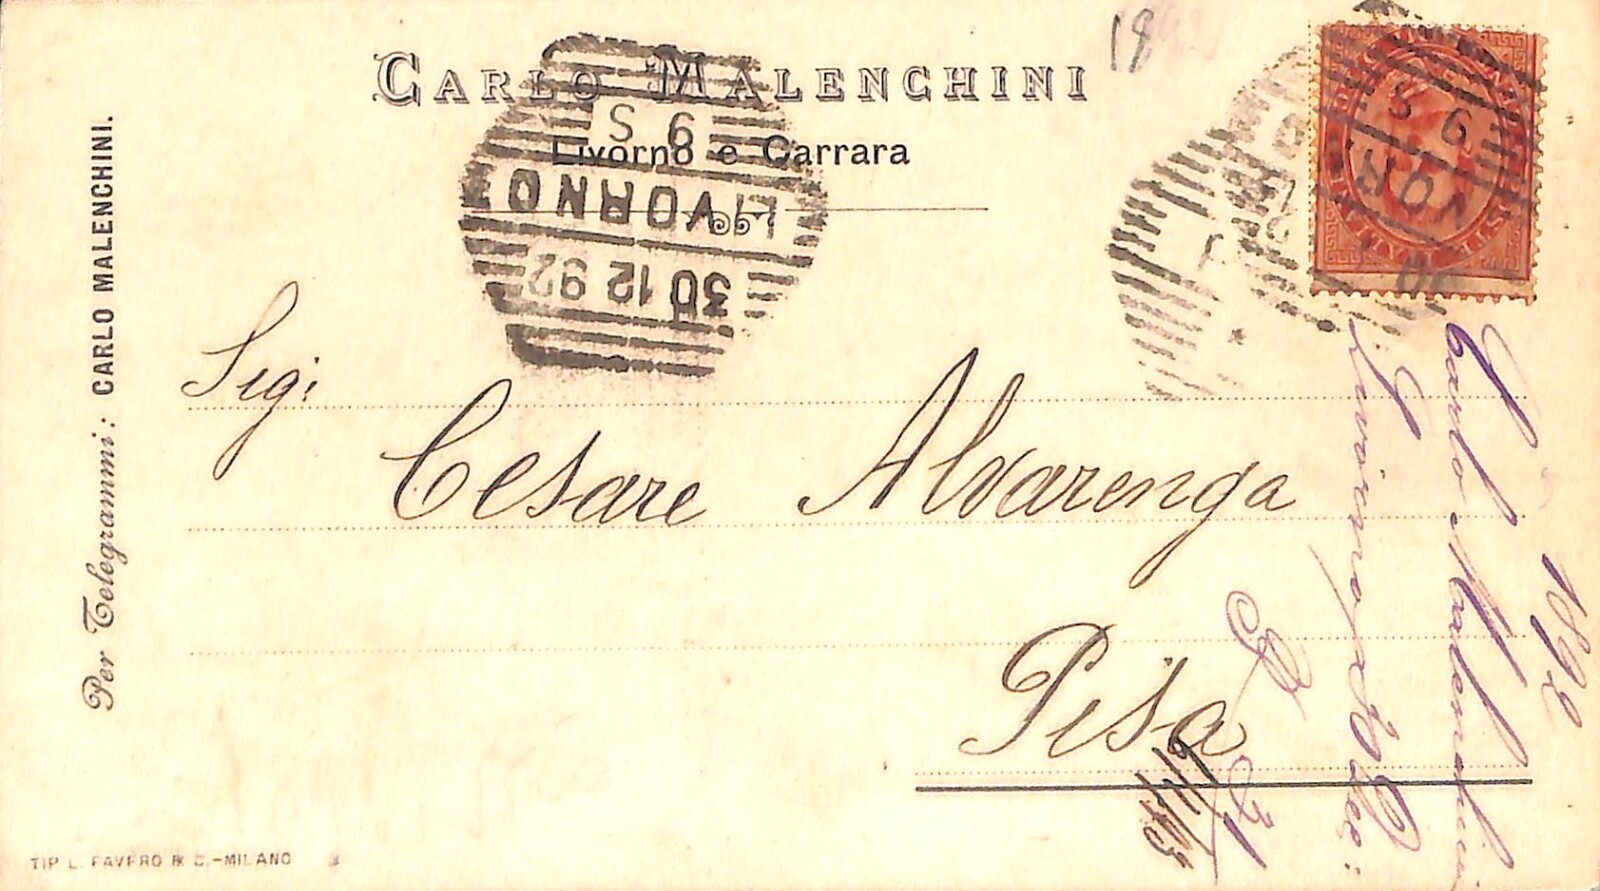 CARLO MALENCHINI
Livorno e Carrara
6 S
LIVORNO
30 12 92
Per Telegrammi: CARLO MALENCHINI.
Sigr
Cesare Alvarenga
Pisa
1892
Carlo Malenchini
Livorno
31
TIP L. FAVERO & C.-MILANO